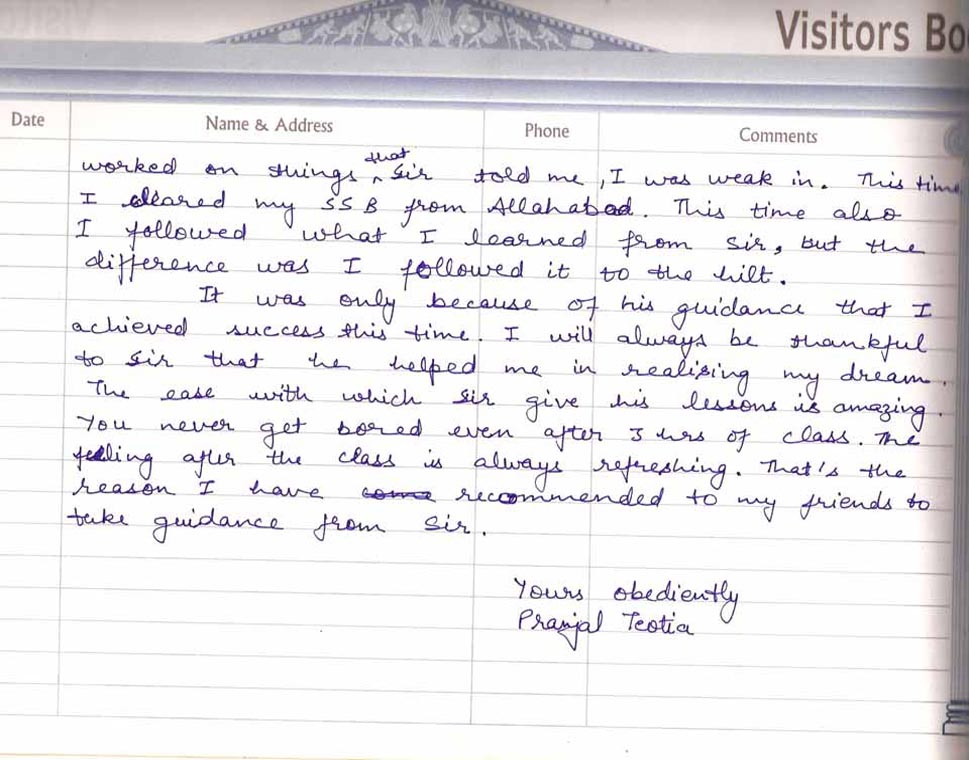 Visitors Bo
Date Name & Address Phone Comments
worked on things that sir told me, I was weak in. This time
I cleared my SSB from Allahabad. This time also
I followed what I learned from sir, but the
difference was I followed it to the hilt.
It was only because of his guidance that I
achieved success this time. I will always be thankful
to sir that he helped me in realising my dream.
The ease with which sir give his lessons is amazing.
You never get bored even after 3 hrs of class. The
feeling after the class is always refreshing. That's the
reason I have come recommended to my friends to
take guidance from sir.
Yours obediently
Pranjal Teotia